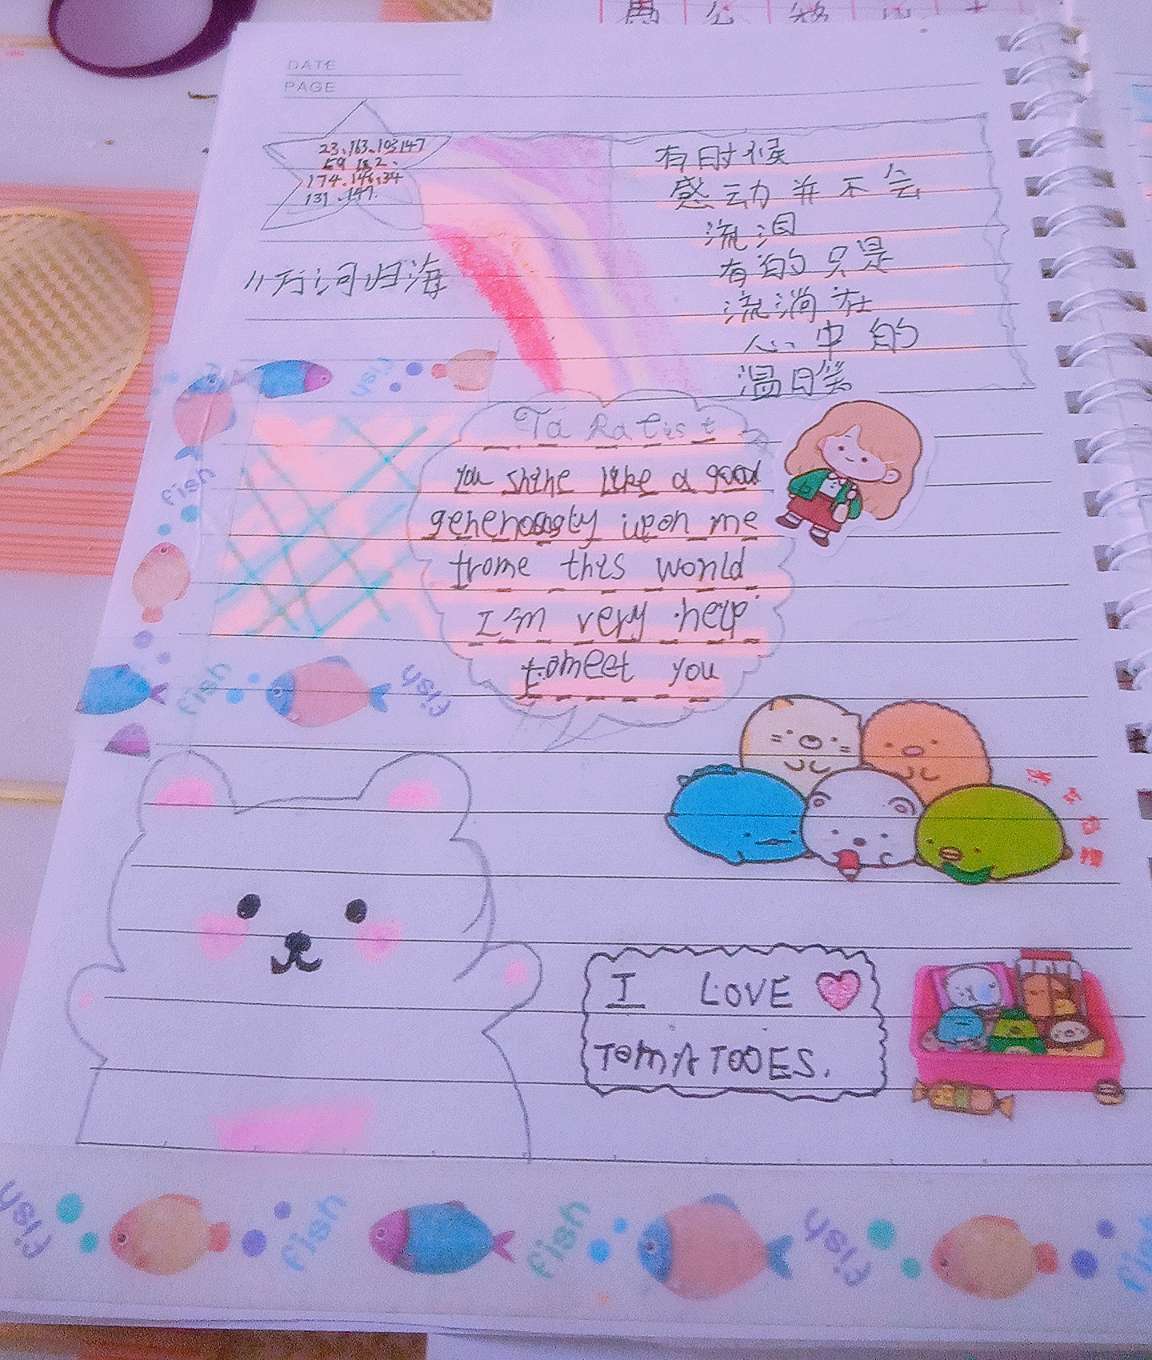 DATE
PAGE
23、163、193 147
59 182、
174、146、34
131、147.
"万河归海
有时候
感动并不会
流泪
有的只是
流淌在
心中的
温日笑
You shine like a good
upon me
frome this world
I'm very help
tomeet you
fish
fish
fish
fish
fish
I LOVE
TOMATOOES.
fish
fish
fish
fish
fish